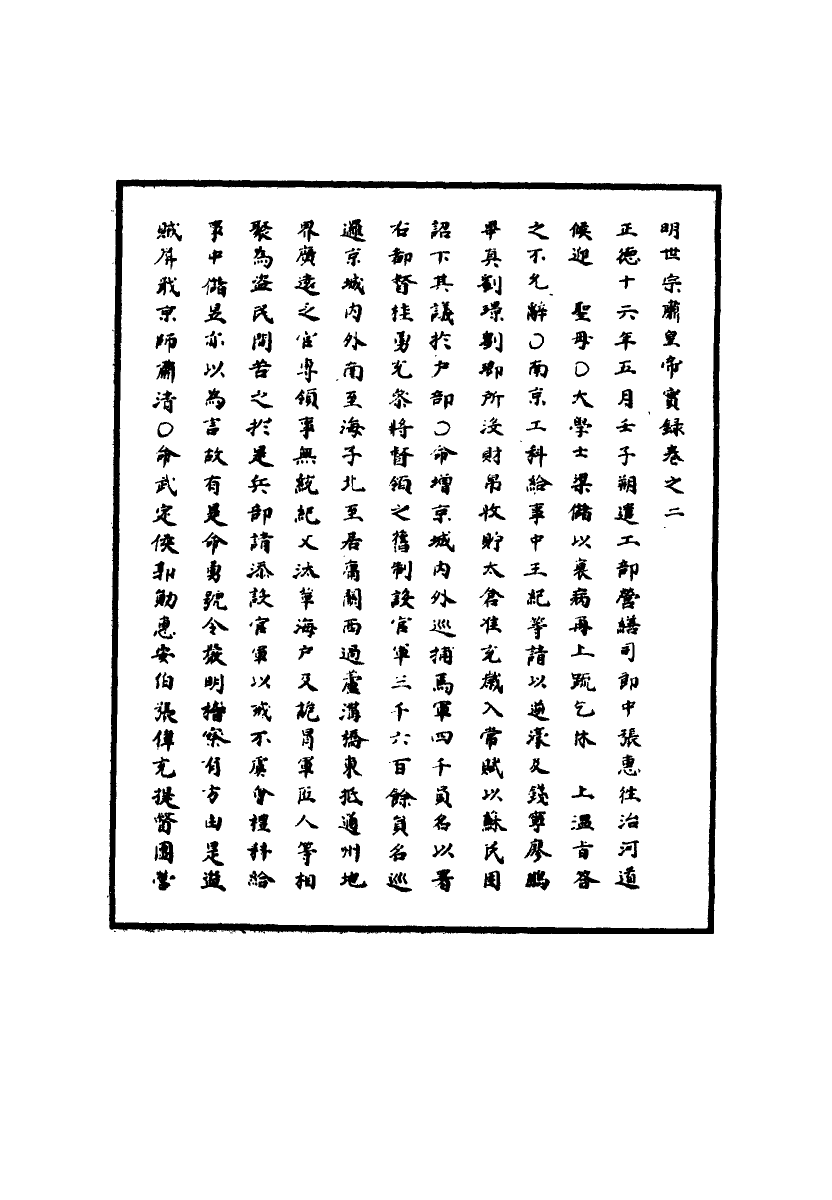 明世宗肅皇帝實錄卷之二
正德十六年五月壬子朔遣工部營繕司郎中張惠往治河道
候迎　聖母○大學士梁儲以衰病再上疏乞休　上溫旨答
之不允辭○南京工科給事中王紀等請以逆濠及錢寧廖鵬
畢真劉璟劉卿所沒財帛收貯太倉准充歲入常賦以蘇民困
詔下其議於戶部○命增京城內外巡捕馬軍四千員名以署
右都督桂勇充叅將督領之舊制設官軍三千六百餘員名巡
邏京城內外南至海子北至居庸關西過蘆溝橋東抵通州地
界廣遠之官專領事無統紀又汰革海戶及詭冒軍匠人等相
聚為盜民間苦之於是兵部請添設官軍以戒不虞會禮科給
事中儲昱亦以為言故有是命勇號令嚴明擒察有方由是盜
賊屏戢京師肅清○命武定侯郭勛惠安伯張偉充提督團營